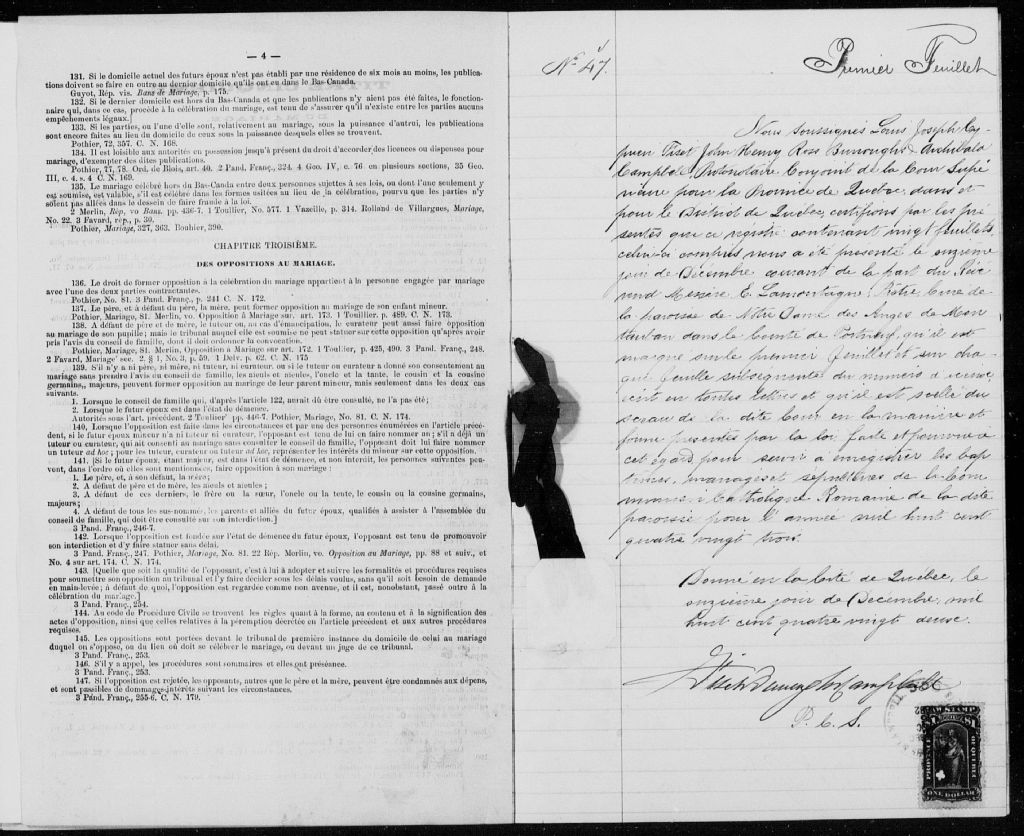 — 4 —
131. Si le domicile actuel des futurs époux n'est pas établi par une résidence de six mois au moins, les publica-
tions doivent se faire en outre au dernier domicile qu'ils ont eu dans le Bas-Canada.
Guyot, Rép. vis. Bans de Mariage, p. 175.
132. Si le dernier domicile est hors du Bas-Canada et que les publications n'y aient pas été faites, le fonction-
naire qui, dans ce cas, procède à la célébration du mariage, est tenu de s'assurer qu'il n'existe entre les parties aucuns
empêchements légaux.]
133. Si les parties, ou l'une d'elle sont, relativement au mariage, sous la puissance d'autrui, les publications
sont encore faites au lieu du domicile de ceux sous la puissance desquels elles se trouvent.
Pothier, 72, 357. C. N. 168.
134. Il est loisible aux autorités en possession jusqu'à présent du droit d'accorder des licences ou dispenses pour
mariage, d'exempter des dites publications.
Pothier, 77, 78. Ord. de Blois, art. 40. 2 Pand. Franç., 324. 4 Geo. IV, c. 76 en plusieurs sections, 35 Geo.
III, c. 4. s. 4 C. N. 169.
135. Le mariage célébré hors du Bas-Canda entre deux personnes sujettes à ses lois, ou dont l'une seulement y
est soumise, est valable, s'il est célébré dans les formes usitées au lieu de la célébration, pourvu que les parties n'y
soient pas allées dans le dessein de faire fraude à la loi.
2 Merlin, Rép, vo Bans. pp. 436-7. 1 Toullier, No. 577. 1 Vazeille, p. 314. Rolland de Villargues, Mariage,
No. 22. 3 Favard, rép., p. 30.
Pothier, Mariage, 327, 363. Bouhier, 390.
CHAPITRE TROISIÈME.
DES OPPOSITIONS AU MARIAGE.
136. Le droit de former opposition à la célébration du mariage appartient à la personne engagée par mariage
avec l'une des deux parties contractantes.
Pothier, No. 81. 3 Pand. Franç., p. 241 C. N. 172.
137. Le père, et à défaut du père, la mère, peut former opposition au mariage de son enfant mineur.
Pothier, Mariage, 81. Merlin, vo. Opposition à Mariage sur. art. 173. 1 Toullier. p. 489. C. N. 173.
138. A défaut de père et de mère, le tuteur ou, au cas d'émancipation, le curateur peut aussi faire opposition
au mariage de son pupille; mais le tribunal auquel elle est soumise ne peut statuer sur cette opposition qu'après avoir
pris l'avis du conseil de famille, dont il doit ordonner la convocation.
Pothier, Mariage, 81. Merlin, Opposition à Mariage sur art. 172. 1 Toullier, p. 425, 490. 3 Pand. Franç., 248.
2 Favard, Mariage sec. 2. § 1, No. 3, p. 59. 1 Delv. p. 62. C. N. 175
139. S'il n'y a ni père, ni mère, ni tuteur, ni curateur, ou si le tuteur ou curateur a donné son consentement au
mariage sans prendre l'avis du conseil de famille, les aïeuls et aïeules, l'oncle et la tante, le cousin et la cousine
germains, majeurs, peuvent former opposition au mariage de leur parent mineur, mais seulement dans les deux cas
suivants.
1. Lorsque le conseil de famille qui, d'après l'article 122, aurait dû être consulté, ne l'a pas été;
2. Lorsque le futur époux est dans l'état de démence.
Autorités sous l'art. précédent. 2 Toullier pp. 446-7. Pothier, Mariage, No. 81. C. N. 174.
140. Lorsque l'opposition est faite dans les circonstances et par une des personnes énumérées en l'article précé-
dent, si le futur époux mineur n'a ni tuteur ni curateur, l'opposant est tenu de lui en faire nommer un; s'il a déjà un
tuteur ou curateur, qui ait consenti au mariage sans consulter le conseil de famille, l'opposant doit lui faire nommer
un tuteur ad hoc; pour les tuteur, curateur ou tuteur ad hoc, représenter les intérêts du mineur sur cette opposition.
141. [Si le futur époux, étant majeur, est dans l'état de démence, et non interdit, les personnes suivantes peu-
vent, dans l'ordre où elles sont mentionnées, faire opposition à son mariage:
1. Le père, et, à son défaut, la mère;
2. A défaut de père et de mère, les aïeuls et aïeules;
3. A défaut de ces derniers, le frère ou la sœur, l'oncle ou la tente, le cousin ou la cousine germains,
majeurs;
4. A défaut de tous les sus-nommés, les parents et alliés du futur époux, qualifiés à assister à l'assemblée du
conseil de famille, qui doit être consulté sur son interdiction.]
3 Pand. Franç., 246-7.
142. Lorsque l'opposition est fondée sur l'état de démence du futur époux, l'opposant est tenu de promouvoir
son interdiction et d'y faire statuer sans délai.
3 Pand. Franç., 247. Pothier, Mariage, No. 81. 22 Rép. Merlin, vo. Opposition au Mariage, pp. 88 et suiv., et
No. 4 sur art. 174. C. N. 174.
143. [Quelle que soit la qualité de l'opposant, c'est à lui à adopter et suivre les formalités et procédures requises
pour soumettre son opposition au tribunal et l'y faire décider sous les délais voulus, sans qu'il soit besoin de demande
en main-levée; à défaut de quoi, l'opposition est regardée comme non avenue, et il est, nonobstant, passé outre à la
célébration du mariage.]
3 Pand. Franç., 254.
144. Au code de Procédure Civile se trouvent les règles quant à la forme, au contenu et à la signification des
actes d'opposition, ainsi que celles relatives à la péremption décrétée en l'article précédent et aux autres procédures
requises.
145. Les oppositions sont portées devant le tribunal de première instance du domicile de celui au mariage
duquel on s'oppose, ou du lieu où doit se célébrer le mariage, ou devant un juge de ce tribunal.
3 Pand. Franç., 253.
146. S'il y a appel, les procédures sont sommaires et elles ont préséance.
3 Pand. Franç., 253.
147. Si l'opposition est rejetée, les opposants, autres que le père et la mère, peuvent être condamnés aux dépens,
et sont passibles de dommages-intérêts suivant les circonstances.
3 Pand. Franç., 255-6. C. N. 179.
No 47.
Premier Feuillet
Nous soussignés Louis Joseph Cy-
prien Fiset John Henry Ross Burroughs & Archibald
Campbell Protonotaire Conjoint de la Cour Supé
rieure pour la Province de Québec, dans et
pour le District de Québec, certifions par les pré
sentes que ce registre contenant vingt feuillets
celui-ci compris nous a été présenté le onzième
jour de Décembre courant de la part du Révé
rend Messire E. Lamontagne, Prêtre Curé de
la paroisse de Notre Dame des Anges de Mon
tauban dans le Comté de Portneuf, qu'il est
marqué sur le premier feuillet et sur cha
que feuille subséquente du numéro d'icelui,
écrit en toutes lettres et qu'il est scellé du
sceau de la dite Cour en la manière et
forme présentes par la loi faite et pourvue à
cet égard, pour servir à enregistrer les bap
têmes, mariages et sépultures de la Com
munion Catholique Romaine de la dite
paroisse pour l'année mil huit cent
quatre vingt trois.
Donné en la Cité de Québec, le
onzième jour de Décembre, mil
huit cent quatre vingt deux.
Fiset Burroughs Campbell
P. C. S.
LAW STAMP
$1 $1
PROVINCE OF QUEBEC
ONE DOLLAR